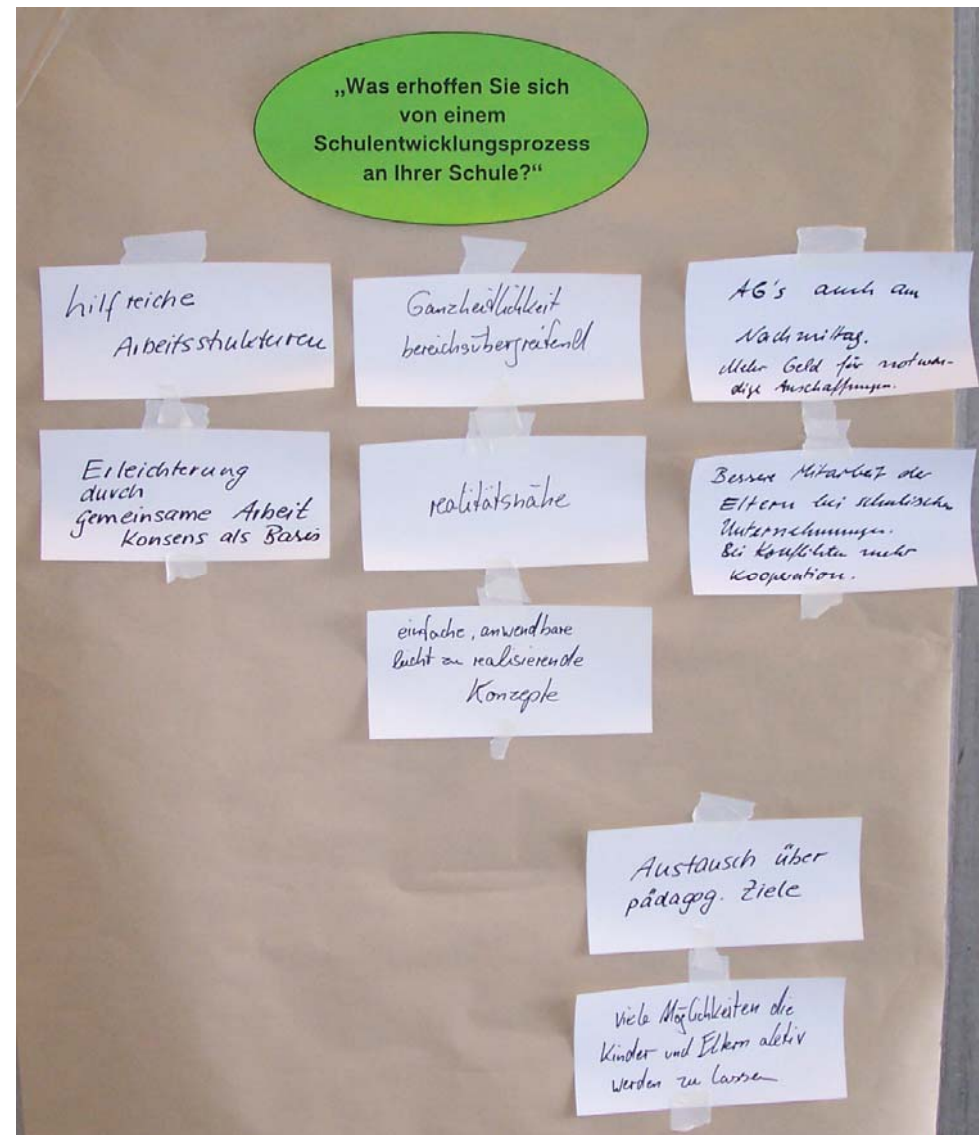 „Was erhoffen Sie sich
von einem
Schulentwicklungsprozess
an Ihrer Schule?“
hilfreiche
Arbeitsstrukturen
Erleichterung
durch
gemeinsame Arbeit
Konsens als Basis
Ganzheitlichkeit
bereichsübergreifend
realitätsnähe
einfache, anwendbare
leicht zu realisierende
Konzepte
AG's auch am
Nachmittag.
Mehr Geld für notwen-
dige Anschaffungen.
Bessere Mitarbeit der
Eltern bei schulischen
Unternehmungen.
Bei Konflikten mehr
Kooperation.
Austausch über
pädagog. Ziele
viele Möglichkeiten die
Kinder und Eltern aktiv
werden zu lassen